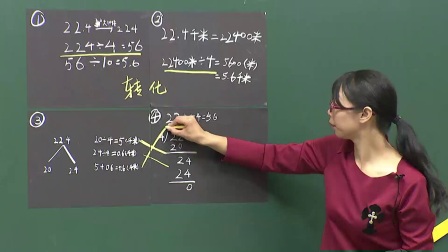 ①
22.4 扩大10倍 224
224÷4=56
56÷10=5.6
②
22.4千米=22400米
22400米÷4=5600(米)
=5.6千米
转化
③
22.4
20 2.4
20÷4=5(千米)
2.4÷4=0.6(千米)
5+0.6=5.6(千米)
④
20
24
24
0